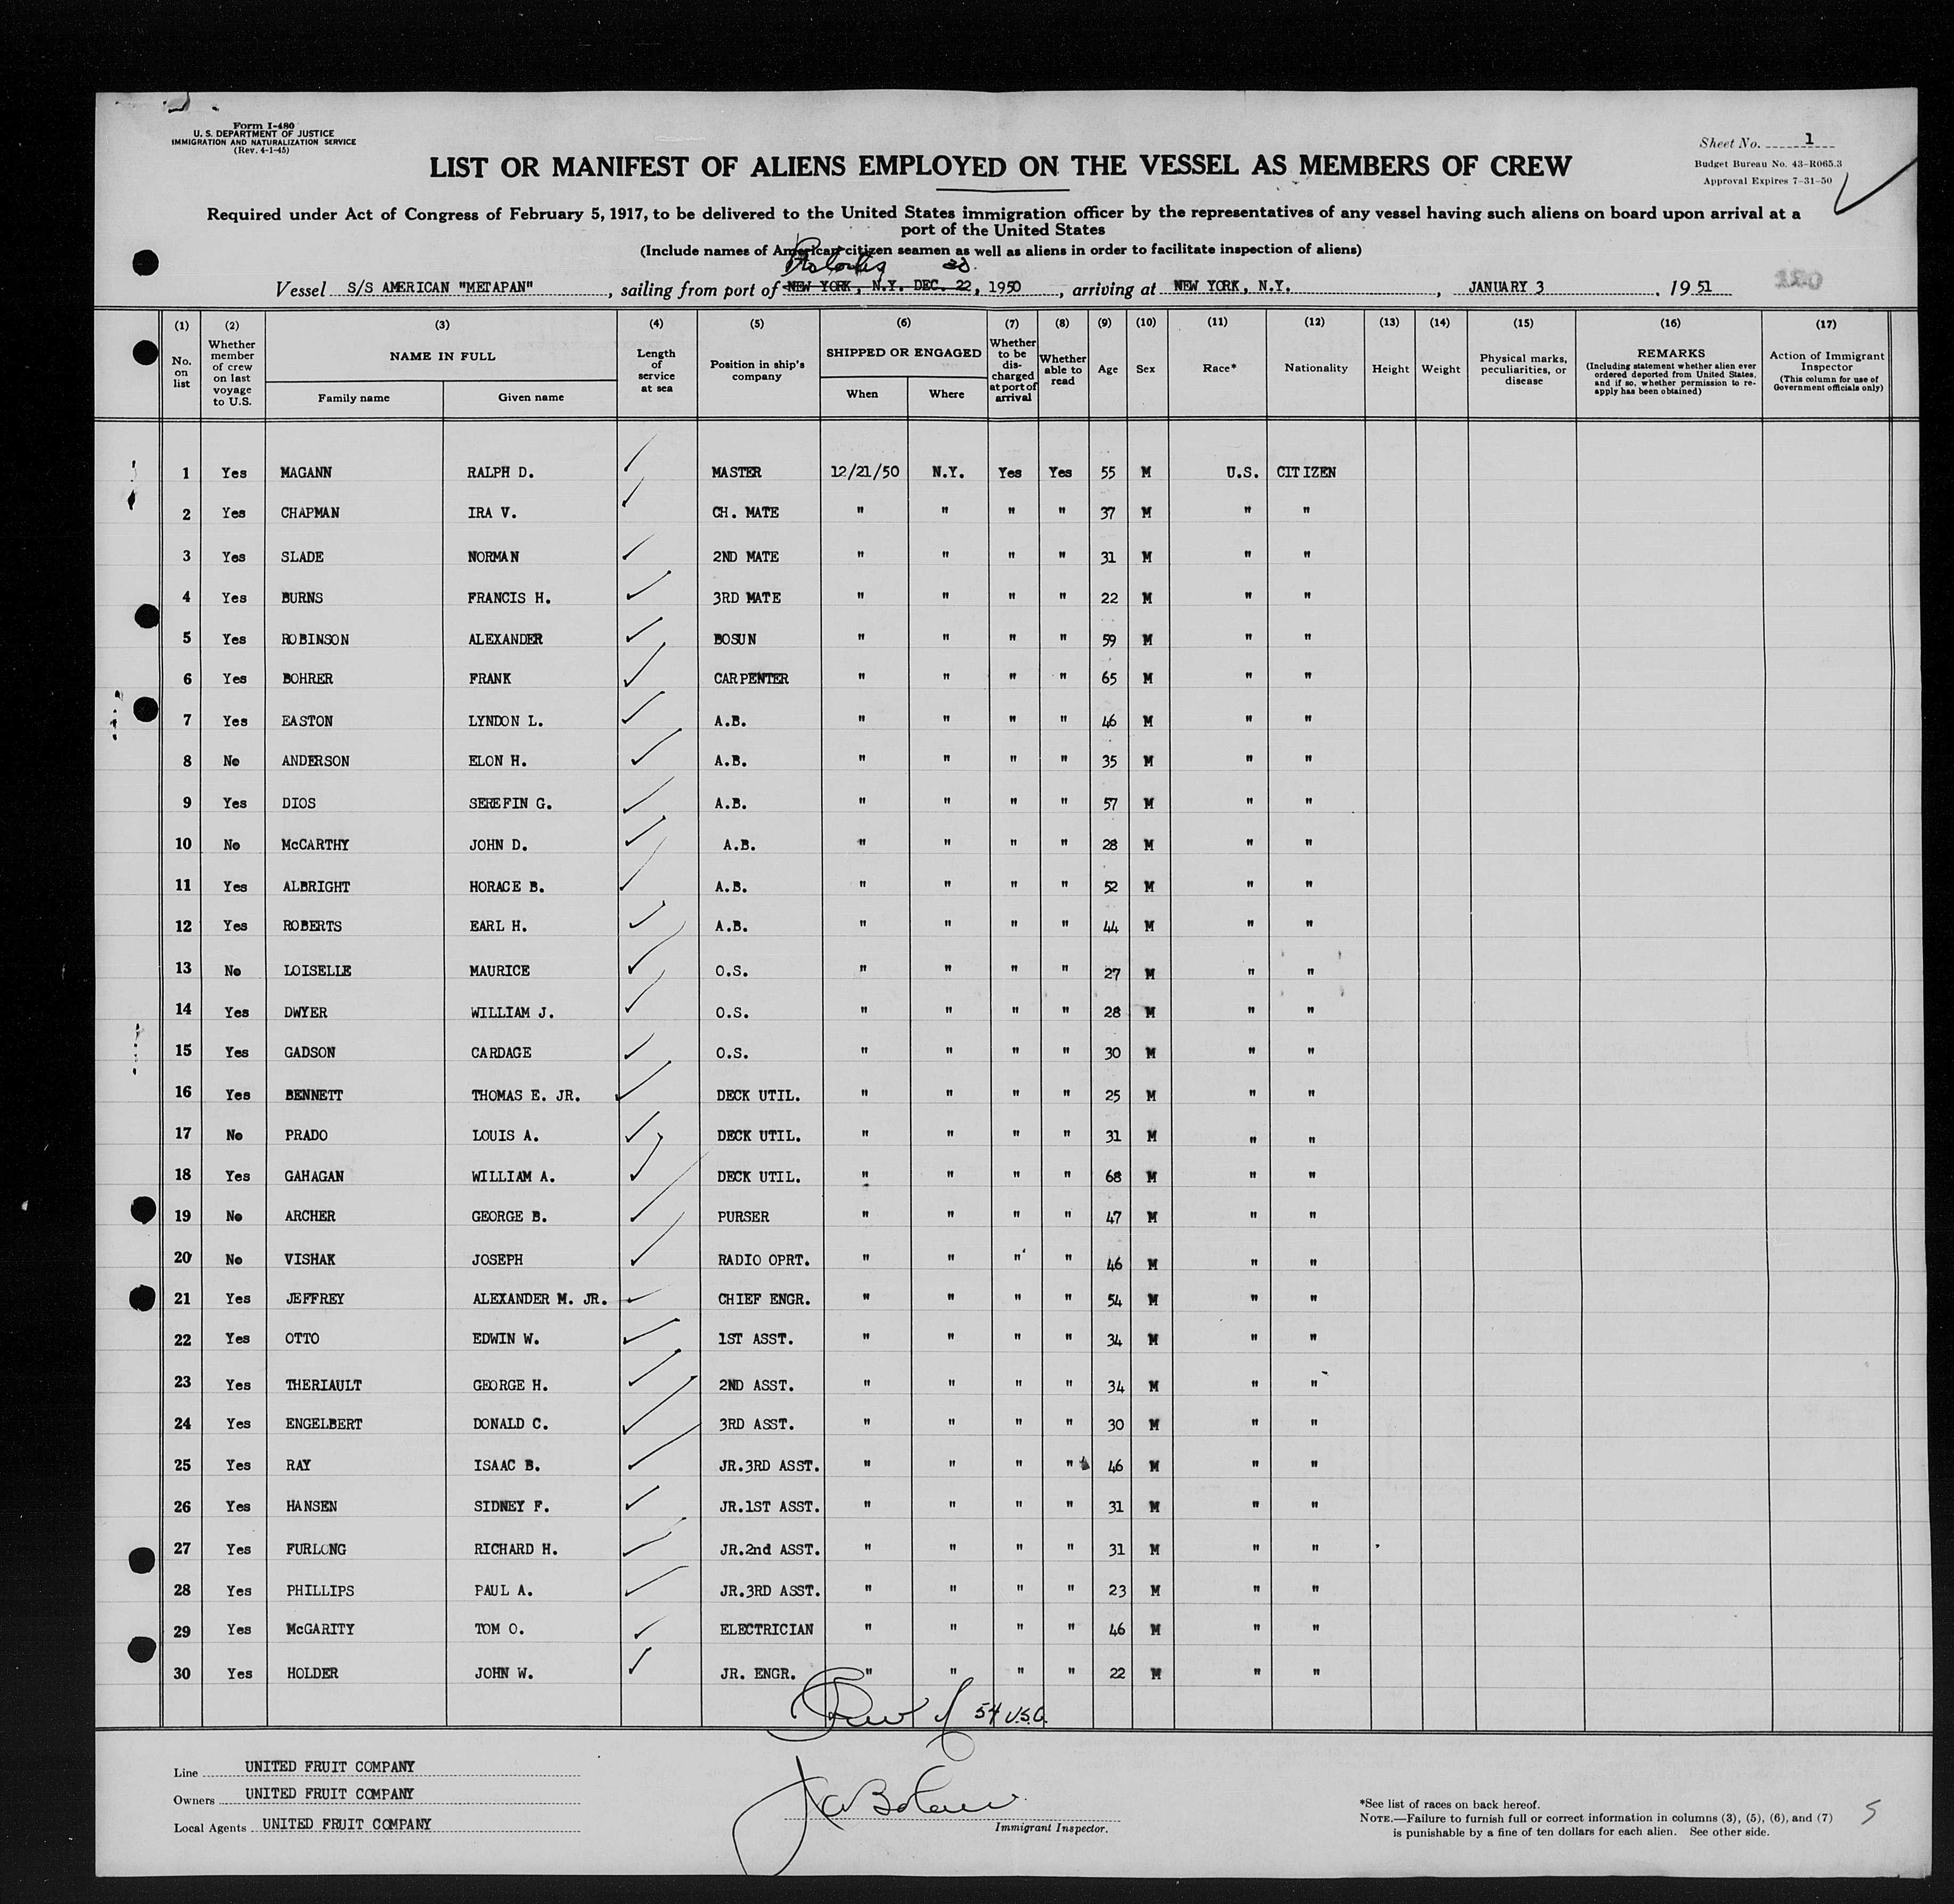 Form I-480
U. S. DEPARTMENT OF JUSTICE
IMMIGRATION AND NATURALIZATION SERVICE
(Rev. 4-1-45)
Sheet No. 1
Budget Bureau No. 43-R065.3
Approval Expires 7-31-50
LIST OR MANIFEST OF ALIENS EMPLOYED ON THE VESSEL AS MEMBERS OF CREW
Required under Act of Congress of February 5, 1917, to be delivered to the United States immigration officer by the representatives of any vessel having such aliens on board upon arrival at a
port of the United States
(Include names of American citizen seamen as well as aliens in order to facilitate inspection of aliens)
Vessel S/S AMERICAN "METAPAN", sailing from port of NEW YORK, N.Y. DEC. 22, 1950, arriving at NEW YORK, N.Y., JANUARY 3, 1951
(1) (2) (3) (4) (5) (6) (7) (8) (9) (10) (11) (12) (13) (14) (15) (16) (17)
No. on list Whether member of crew on last voyage to U.S. NAME IN FULL Family name Given name Length of service at sea Position in ship's company SHIPPED OR ENGAGED When Where Whether to be discharged at port of arrival Whether able to read Age Sex Race* Nationality Height Weight Physical marks, peculiarities, or disease REMARKS (Including statement whether alien ever ordered deported from United States, and if so, whether permission to reapply has been obtained) Action of Immigrant Inspector (This column for use of Government officials only)
1 Yes MAGANN RALPH D. MASTER 12/21/50 N.Y. Yes Yes 55 M U.S. CITIZEN
2 Yes CHAPMAN IRA V. CH. MATE " " " " 37 M " "
3 Yes SLADE NORMAN 2ND MATE " " " " 31 M " "
4 Yes BURNS FRANCIS H. 3RD MATE " " " " 22 M " "
5 Yes ROBINSON ALEXANDER BOSUN " " " " 59 M " "
6 Yes BOHRER FRANK CARPENTER " " " " 65 M " "
7 Yes EASTON LYNDON L. A.B. " " " " 46 M " "
8 No ANDERSON ELON H. A.B. " " " " 35 M " "
9 Yes DIOS SEREFIN G. A.B. " " " " 57 M " "
10 No McCARTHY JOHN D. A.B. " " " " 28 M " "
11 Yes ALBRIGHT HORACE B. A.B. " " " " 52 M " "
12 Yes ROBERTS EARL H. A.B. " " " " 44 M " "
13 No LOISELLE MAURICE O.S. " " " " 27 M " "
14 Yes DWYER WILLIAM J. O.S. " " " " 28 M " "
15 Yes GADSON CARDAGE O.S. " " " " 30 M " "
16 Yes BENNETT THOMAS E. JR. DECK UTIL. " " " " 25 M " "
17 No PRADO LOUIS A. DECK UTIL. " " " " 31 M " "
18 Yes GAHAGAN WILLIAM A. DECK UTIL. " " " " 68 M " "
19 No ARCHER GEORGE B. PURSER " " " " 47 M " "
20 No VISHAK JOSEPH RADIO OPRT. " " " " 46 M " "
21 Yes JEFFREY ALEXANDER M. JR. CHIEF ENGR. " " " " 54 M " "
22 Yes OTTO EDWIN W. 1ST ASST. " " " " 34 M " "
23 Yes THERIAULT GEORGE H. 2ND ASST. " " " " 34 M " "
24 Yes ENGELBERT DONALD C. 3RD ASST. " " " " 30 M " "
25 Yes RAY ISAAC B. JR.3RD ASST. " " " " 46 M " "
26 Yes HANSEN SIDNEY F. JR.1ST ASST. " " " " 31 M " "
27 Yes FURLONG RICHARD H. JR.2nd ASST. " " " " 31 M " "
28 Yes PHILLIPS PAUL A. JR.3RD ASST. " " " " 23 M " "
29 Yes McGARITY TOM O. ELECTRICIAN " " " " 46 M " "
30 Yes HOLDER JOHN W. JR. ENGR. " " " " 22 M " "
54 U.S.C.
Line UNITED FRUIT COMPANY
Owners UNITED FRUIT COMPANY
Local Agents UNITED FRUIT COMPANY
Immigrant Inspector.
*See list of races on back hereof.
NOTE.—Failure to furnish full or correct information in columns (3), (5), (6), and (7)
is punishable by a fine of ten dollars for each alien. See other side.
5